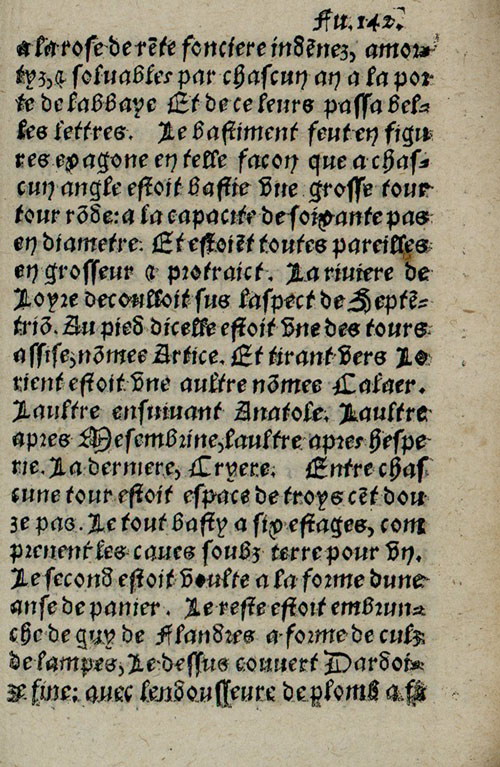 Fu. 142.
a la rose de rẽte fonciere indẽnez, amor-
tyz, & soluables par chascun an a la por
te de labbaye Et de ce leurs passa bel-
les lettres. Le bastiment feut en figu
res exagone en telle facon que a chas-
cun angle estoit bastie vne grosse tour
tour rõde: a la capacite de soixante pas
en diametre. Et estoiẽt toutes pareilles
en grosseur & protraict. La riuiere de
Loyre decoulloit sus laspect de Septẽ-
triõ. Au pied dicelle estoit vne des tours
assise, nõmee Artice. Et tirant vers Lo
rient estoit vne aultre nõmee Calaer.
Laultre ensuiuant Anatole. Laultre
apres Mesembrine, laultre apres hespe
rie. La derniere, Cryere. Entre chas
cune tour estoit espace de troys cẽt dou
ze pas. Le tout basty a six estages, com
prenent les caues soubz terre pour vn.
Le second estoit voulte a la forme dune
anse de panier. Le reste estoit embrun-
che de guy de Flandres a forme de culz
de lampes, Le dessus couuert Dardoi-
ze fine: auec lendousseure de plomb a fi